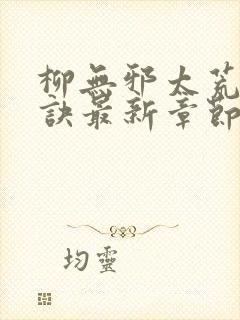 柳無邪太荒
訣最新章節
均靈